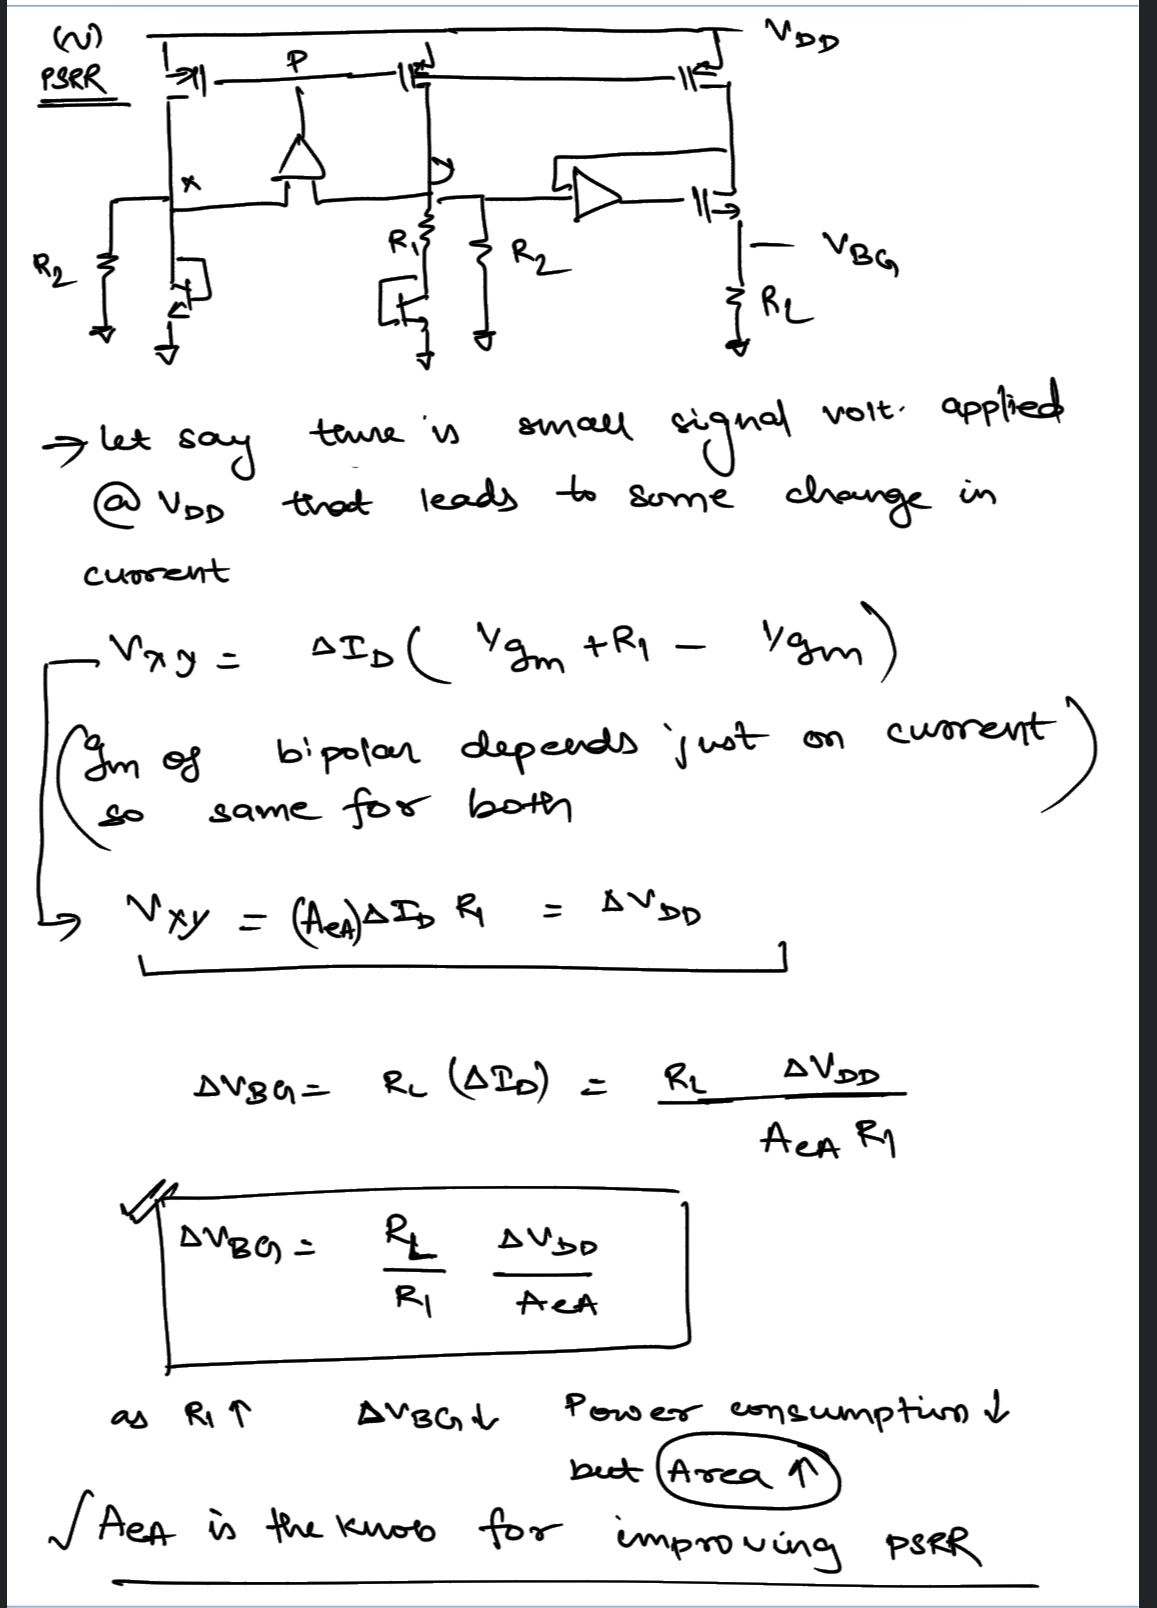 (vi)
PSRR
VDD
P
x
y
R2
R1
R2
VBG
RL
→ let say there is small signal volt. applied
@ VDD that leads to some change in
current
Vxy = ΔID ( 1/gm + R1 - 1/gm )
( gm of bipolar depends just on current
so same for both )
→ Vxy = (AeA) ΔID R1 = ΔVDD
ΔVBG = RL (ΔID) = RL ΔVDD / AeA R1
ΔVBG = RL/R1 ΔVDD/AeA
as R1 ↑ ΔVBG ↓ Power consumption ↓
but Area ↑
√ AeA is the knob for improving PSRR